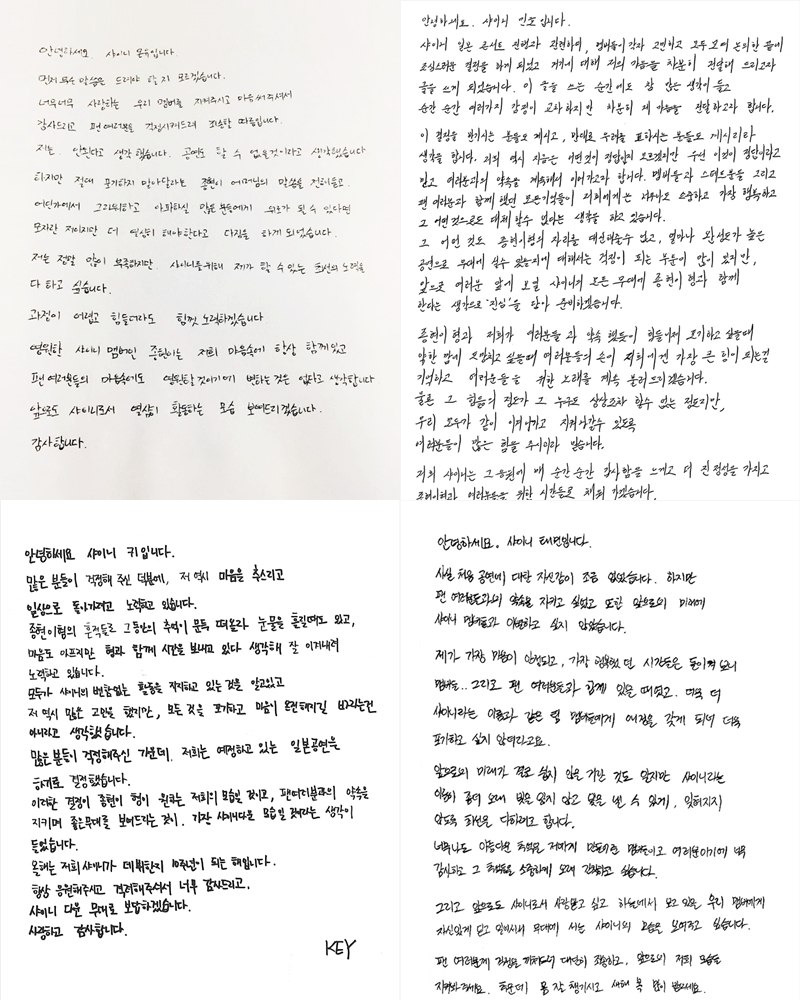 안녕하세요. 샤이니 온유입니다.
먼저 무슨 말씀을 드려야 할 지 모르겠습니다.
너무너무 사랑하는 우리 멤버를 지켜주시고 마음써주셔서
감사드리고 팬 여러분을 걱정시켜드려 죄송할 따름입니다.
저는 안된다고 생각했습니다. 공연도 할 수 없을것이라고 생각했습니다
하지만 절대 포기하지 말아달라는 종현이 어머님의 말씀을 전해듣고.
어딘가에서 그리워하고 아파하실 많은 분들에게 위로가 될 수 있다면
모자란 저이지만 더 열심히 해야한다고 다짐을 하게 되었습니다.
저는 정말 많이 부족하지만 샤이니를 위해 제가 할 수 있는 최선의 노력을
다 하고 싶습니다.
과정이 어렵고 힘들더라도 힘껏 노력하겠습니다
영원할 샤이니 멤버인 종현이는 저희 마음속에 항상 함께있고
팬 여러분들의 마음속에도 영원할것이기에 변하는 것은 없다고 생각합니다
앞으로도 샤이니로서 열심히 활동하는 모습 보여드리겠습니다.
감사합니다.
안녕하세요. 샤이니 민호입니다.
샤이니 일본 콘서트 진행과 관련하여, 멤버들이 각자 고민하고 모두 모여 논의한 끝에
조심스러운 결정을 하게 되었고 거기에 대해 저의 마음을 차분히 전달해 드리고자
글을 쓰게 되었습니다. 이 글을 쓰는 순간에도 참 많은 생각이 들고
순간 순간 여러가지 감정이 교차하지만 차분히 제 마음을 전달하고자 합니다.
이 결정을 반기시는 분들도 계시고, 반대로 우려를 표하시는 분들도 계시리라
생각을 합니다. 저희 역시 지금은 어떤것이 정답인지 모르겠지만 우선 이것이 정답이라고
믿고 여러분과의 약속을 계속해서 이어가고자 합니다. 멤버들과 스태프분들 그리고
팬 여러분과 함께 했던 모든기억들이 저희에게는 너무나도 소중하고 가장 행복하고
그 어떤것으로도 대체할수 없다는 생각을 하고 있습니다.
그 어떤 것도 종현이형의 자리를 대신해줄수 없고, 얼마나 완성도가 높은
공연으로 무대에 설수 있을지에 대해서는 걱정이 되는 부분이 많이 있지만,
앞으로 여러분 앞에 보일 샤이니의 모든 무대에 종현이형과 함께
한다는 생각으로 '진심'을 담아 준비하겠습니다.
종현이형과 저희가 여러분들과 약속 했듯이 힘들어서 포기하고 싶을때
막막한 앞에 도망치고 싶을때 여러분들의 손이 저희에겐 가장 큰 힘이 되는걸
기억하고 여러분들을 위한 노래를 계속 불러드리겠습니다.
물론 그 힘듦의 정도가 그 누구도 상상조차 할수 없는 정도지만,
우리 모두가 같이 이겨나가고 지켜나갈수 있도록
여러분들이 많은 힘을 주시리라 믿습니다.
저희 샤이니는 그 응원에 매 순간순간 감사함을 느끼고 더 진정성을 가지고
종현이형과 여러분들을 위한 시간들로 채워 가겠습니다.
안녕하세요 샤이니 키 입니다.
많은 분들이 걱정해 주신 덕분에, 저 역시 마음을 추스리고
일상으로 돌아가려고 노력하고 있습니다.
종현이형의 흔적들로 그동안의 추억이 문득 떠올라 눈물을 흘릴때도 있고,
마음도 아프지만 형과 함께 시간을 보내고 있다 생각해 잘 이겨내려
노력하고 있습니다.
모두가 샤이니의 변함없는 활동을 지지하고 있는 것을 알고있고
저 역시 많은 고민을 했지만, 모든 것을 포기하고 마음이 온전해지길 바라는건
아니라고 생각했습니다.
많은 분들이 걱정해주신 가운데. 저희는 예정하고 있는 일본공연을
하기로 결정했습니다.
이러한 결정이 종현이 형이 원하는 저희의 모습일 것이고, 팬여러분과의 약속을
지키며 좋은무대를 보여드리는 것이. 가장 샤이니다운 모습일 것이라는 생각이
들었습니다.
올해는 저희 샤이니가 데뷔한지 10주년이 되는 해입니다.
항상 응원해주시고 격려해주셔서 너무 감사드리고.
샤이니 다운 무대로 보답하겠습니다.
사랑하고 감사합니다.
KEY
안녕하세요. 샤이니 태민입니다.
사실 처음 공연에 대한 자신감이 조금 없었습니다. 하지만
팬 여러분들과의 약속을 지키고 싶었고 또한 앞으로의 미래에
샤이니 멤버들과 이별하고 싶지 않았습니다.
제가 가장 마음이 안정되고, 가장 행복했던 시간들은 돌이켜 보니
멤버들.. 그리고 팬 여러분들과 함께 있을 때였고. 더욱 더
샤이니라는 이름과 같은 팀 멤버들에게 애정을 갖게 되니 더욱
포기하고 싶지 않더라고요.
앞으로의 미래가 결코 쉽지 않은 거란 것도 알지만 샤이니라는
이름이 좀더 오래 빛을 잃지 않고 빛을 낼 수 있게, 잊혀지지
않도록 최선을 다하려고 합니다.
너무나도 아름다운 추억을 저에게 만들어준 멤버들이고 여러분이기에 너무
감사하고 그 추억을 소중하게 오래 간직하고 싶습니다.
그리고 앞으로도 샤이니로서 사랑받고 싶고 하늘에서 보고 있을 우리 멤버에게
자신있게 믿고 일어서서 무대에 서는 샤이니의 모습을 보여주고 싶습니다.
팬 여러분께 걱정을 끼쳐드려 대단히 죄송하고, 앞으로의 저희 모습을
지켜봐주세요. 추운데 몸 잘 챙기시고 새해 복 많이 받으세요.